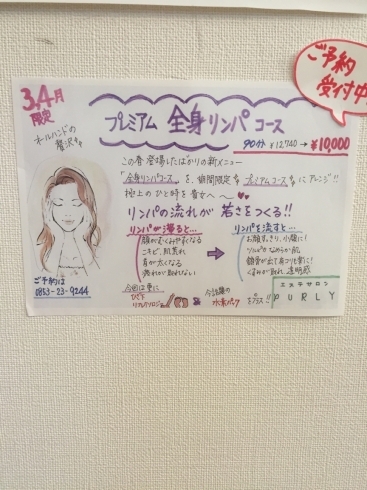 3,4月
限定
オールハンドの
贅沢
プレミアム 全身リンパ コース
ご予約
受付中
90分 ¥12,740→¥10,000
この春登場したばかりの新メニュー
「全身リンパコース」を、期間限定 プレミアムコース にアレンジ!!
極上のひと時を貴女へ〜
リンパの流れが 若さをつくる!!
リンパが滞ると…
顔がむくみやすくなる
ニキビ、肌荒れ
身が太くなる
疲れが取れない
リンパを流すと…
お顔すっきり、小顔に!
ツルツルなめらか肌
鎖骨が出て首つも美しく!
くすみが取れ、透明感
ご予約は
0853-23-9244
今回は更に
ひざ下
リフレクソロジー
今話題の
水素パック
をプラス!!
エステサロン
PURLY